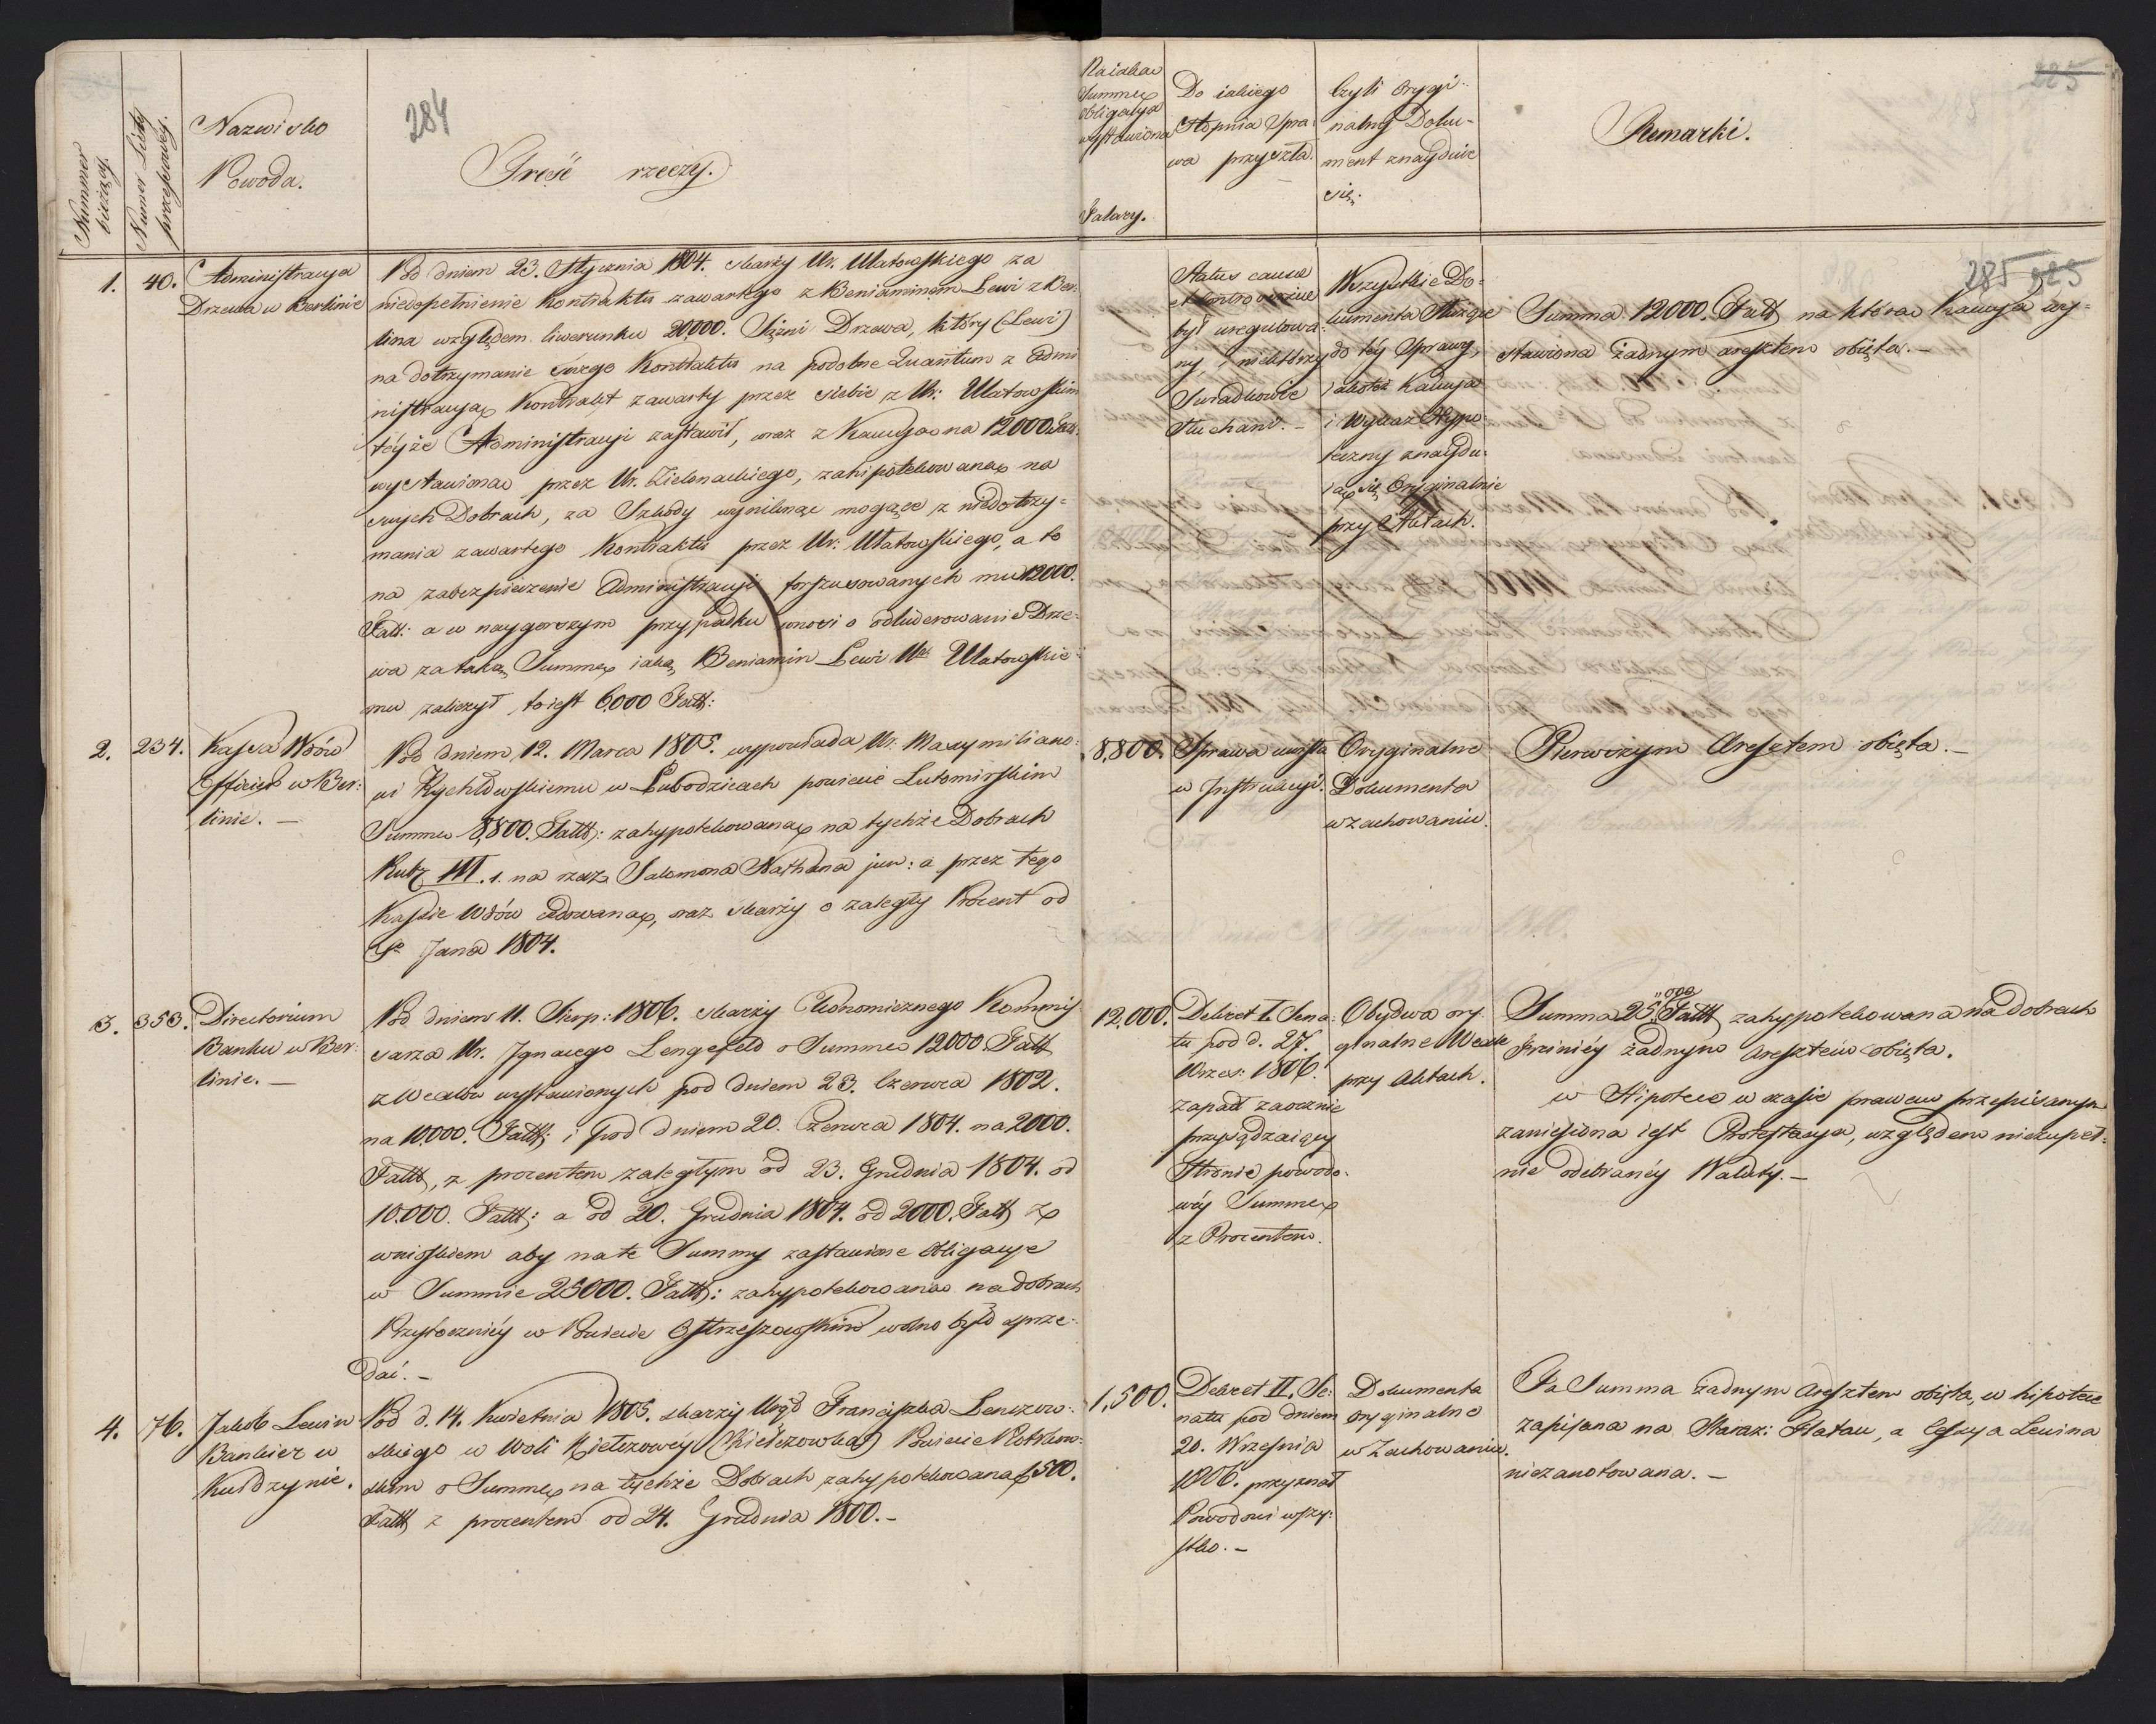 284
285
Nummer bieżący.
Numer Listy processowéy.
Nazwisko
Powoda.
Treść rzeczy.
Na iaką
Summę
obligacya
wystawiona
Talary.
Do iakiego
Stopnia Spra:
wa przyszła.
Czyli Orygi:
nalny Doku-
ment znayduie
się.
Remarki.
285
1. 40.
Administracya
Drzewa w Berlinie
Pod dniem 23. Stycznia 1804. skarży Ur. Ulatowskiego za
niedopełnienie Kontraktu zawartego z Beniaminem Lewi z Ber:
lina względem liwerunku 20,000. Sążni Drzewa, który (Lewi)
na dotrzymanie swego Kontraktu na podobne Quantum z Admi
nistracyą Kontrakt zawarty przez siebie z Ur. Ulatowskim
téyże Administracyi zastawił, oraz z Kaucyą na 12000 Tal:
wystawioną przez Ur. Zielenackiego, zahipotekowaną na
swych Dobrach, za Szkody wyniknąć mogące z niedotrzy-
mania zawartego Kontraktu przez Ur: Ulatowskiego, a to
na zabezpieczenie Administracyi forszusowanych mu 12000.
Tall: a w naygorszym przypadku wnosi o odliwerowanie Drze-
wa za taką Summę iaką Beniamin Lewi Ur Ulatowskie:
mu zaliczył to iest 6,000 Tall:
Status causae
et Controversiae
był uregulowa:
ny, nielktrzy
Swiadkowie
słuchani. -
Wszystkie Do-
kumenta Służące
do téy Sprawy,
iakoteż Kaucya
i Wykaz Hypo:
teczny znaydu-
ią się Originalnie
przy Aktach.
Summa 12000. Tall na którą Kaucya wy-
stawiona żadnym aresztem obięta. -
2. 234.
Kassa Wdów
Officier w Ber:
linie. -
Pod dniem 12. Marca 1805. wypowiada Ur. Maxymiliano:
wi Rychłowskiemu w Lubodzicach powiecie Lutomirskim
Summę 8,800. Tall: zahypotekowaną na tychże Dobrach
Rub. III. 1. na rzecz Salomona Nathana jun: a przez tego
Kassie Wdów cedowaną, oraz skarży o zaległy Procent od
S Jana 1804.
8,800.
Sprawa wyszła
w Instrukcyi.
Oryginalne
Dokumenta
w zachowaniu.
Pierwszym Aresztem obięta. -
3. 353.
Directorium
Banku w Ber:
linie. -
Pod dniem 11. Sierp: 1806. skarży Ekonomicznego Kommis
sarza Ur. Ignacego Lengefeld o Summę 12000 Tall
z Wexlów wystawionych pod dniem 23. Czerwca 1802.
na 10.000. Tall: i pod dniem 20. Czerwca 1804. na 2000.
Tall, z procentem zaległym od 23. Grudnia 1804. od
10.000. Tall: a od 20. Grudnia 1804. od 2000. Tall z
wnioskiem aby na te Summy zastawione Obligacye
w Summie 25000. Tall: zahypotekowaną na dobrach
Przytoczniéy w Powiecie Ostrzeszowskim wolno było sprze-
dać. -
12,000.
Dekret I. Sena:
tu pod d. 27.
Wrześ: 1806.
zapadł zaocznie
przysądzaiący
Stronie powodo-
wéy Summę
z Procentem.
Obydwa ory:
ginalne Wexle
przy Aktach.
Summa 25,000 Tall zahypotekowana na dobrach
żadnym Aresztem obięta.
w Hipotece w czasie prawem przepisanym
zaniesiona iest Protestacya, względem niezupeł:
nie odebranéy Waluty. -
4. 76.
Jakob Lewin
Bankier w
Pod d. 14. Kwietnia 1805. skarży Urod Franciszka Lenczow:
skiego w Woli Kiełczowéy (Kiełczowka) Powiecie Piotrkow:
skim o Summę na tychże Dobrach zahypotekowaną 1,500.
Tall z procentem od 24. Grudnia 1800. -
1,500.
Dekret II. Se:
natu pod dniem
20. Września
1806. przyznał
Powodowi wszy:
stko. -
Dokumenta
oryginalne
w Zachowaniu.
Ta Summa żadnym Aresztem obięta, w hipotece
zapisana na Staroz: Flatau, a Cessya Lewina
niezanotowana. -